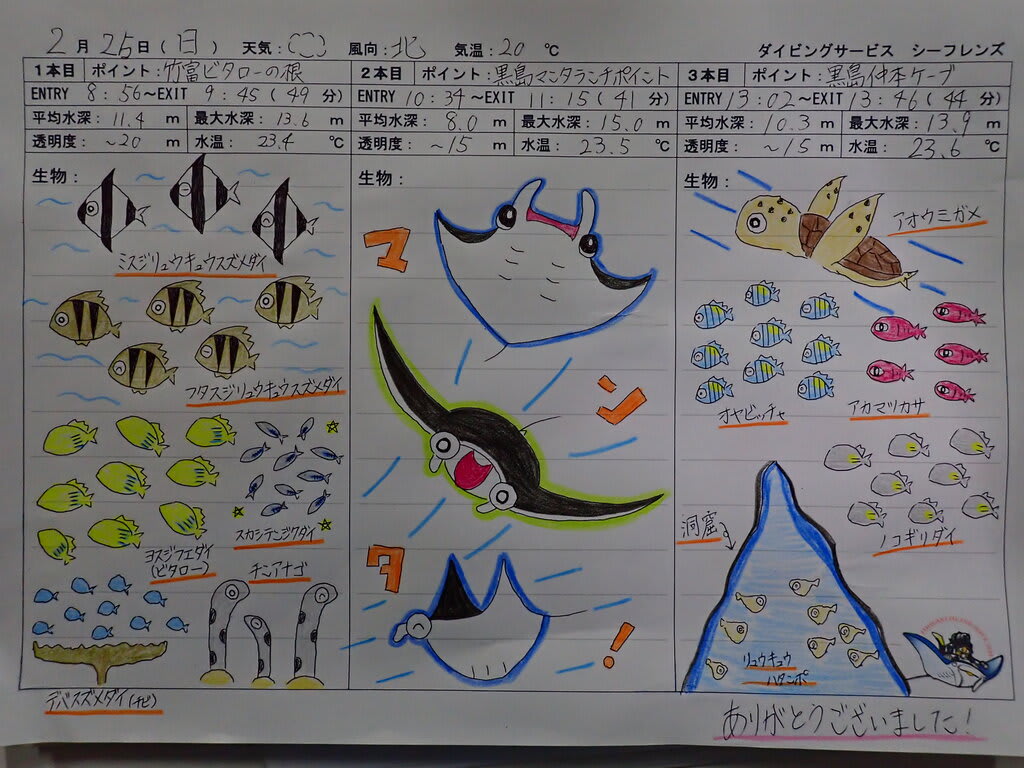 2月25日(日) 天気: 風向:北 気温:20 ℃ ダイビングサービス シーフレンズ
1本目 ポイント:竹富ビタローの根
ENTRY 8:56~EXIT 9:45(49分)
平均水深:11.4 m 最大水深:13.6 m
透明度:~20 m 水温:23.4 ℃
生物:
ミスジリュウキュウスズメダイ
フタスジリュウキュウスズメダイ
ヨスジフエダイ
(ビタロー)
スカシテンジクダイ
チンアナゴ
デバスズメダイ(チビ)
2本目 ポイント:黒島マンタランチポイント
ENTRY 10:34~EXIT 11:15(41分)
平均水深:8.0 m 最大水深:15.0 m
透明度:~15 m 水温:23.5 ℃
生物:
マ
ン
タ
!
3本目 ポイント:黒島仲本ケーブ
ENTRY 13:02~EXIT 13:46(44分)
平均水深:10.3 m 最大水深:13.9 m
透明度:~15 m 水温:23.6 ℃
生物:
アオウミガメ
オヤビッチャ
アカマツカサ
ノコギリダイ
洞窟
リュウキュウ
ハタンポ
ありがとうございました!